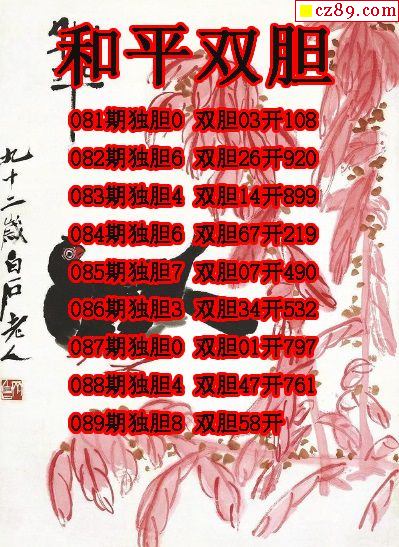 cz89.com
和平双胆
081期独胆0 双胆03开108
082期独胆6 双胆26开920
083期独胆4 双胆14开899
084期独胆6 双胆67开219
085期独胆7 双胆07开490
086期独胆3 双胆34开532
087期独胆0 双胆01开797
088期独胆4 双胆47开761
089期独胆8 双胆58开
九十二岁白石老人